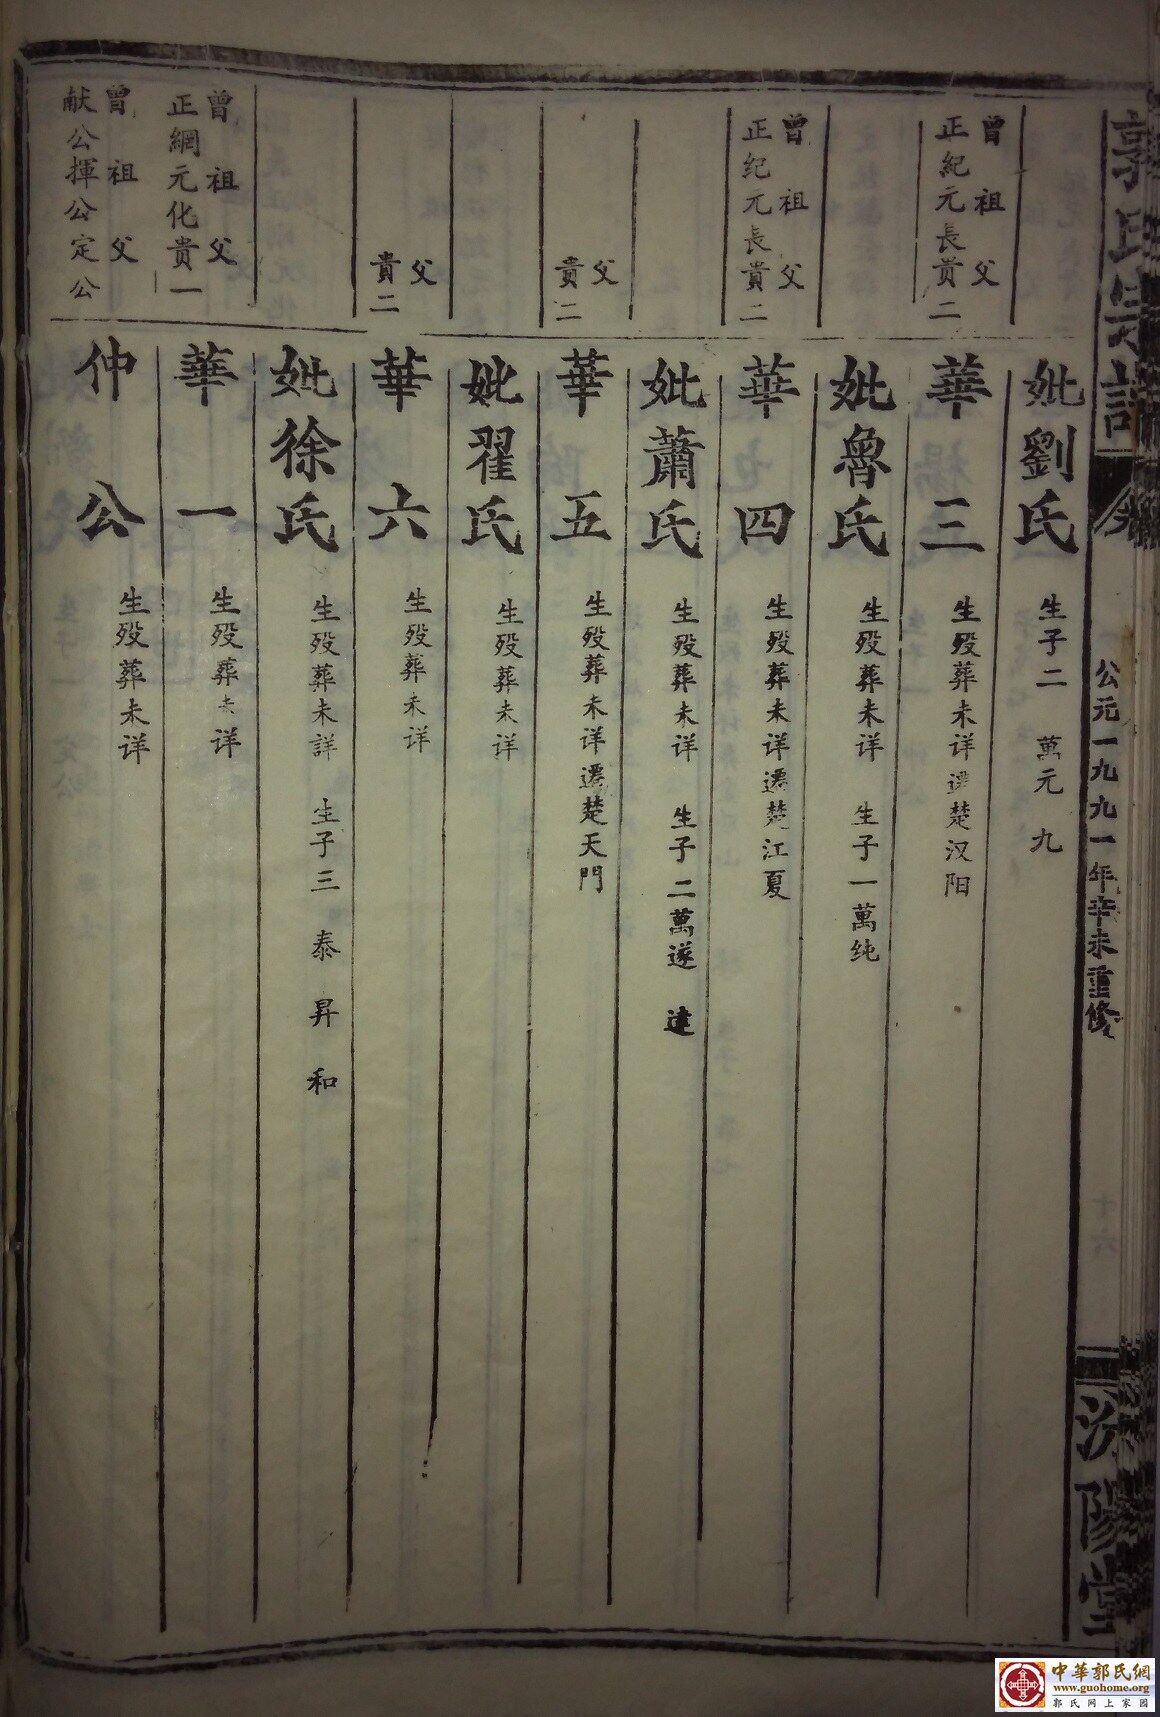 郭氏宗譜
公元一九九一年辛未重修
汾陽堂
妣劉氏
生子二 萬元 九
曾祖父
正紀元長貴二
華三
生殁葬未详遷楚汉阳
妣魯氏
生殁葬未详 生子一萬纯
曾祖父
正纪元長貴二
華四
生殁葬未详遷楚江夏
妣蕭氏
生殁葬未详 生子二萬遂 達
父
貴二
華五
生殁葬未详遷楚天門
妣翟氏
生殁葬未详
父
貴二
華六
生殁葬未详
妣徐氏
生殁葬未詳 生子三 泰 昇 和
曾祖父
正綱元化貴一
華一
生殁葬未详
曾祖父
献公揮公定公
仲公
生殁葬未详
中華郭氏網
www.guohome.org
郭氏网上家园